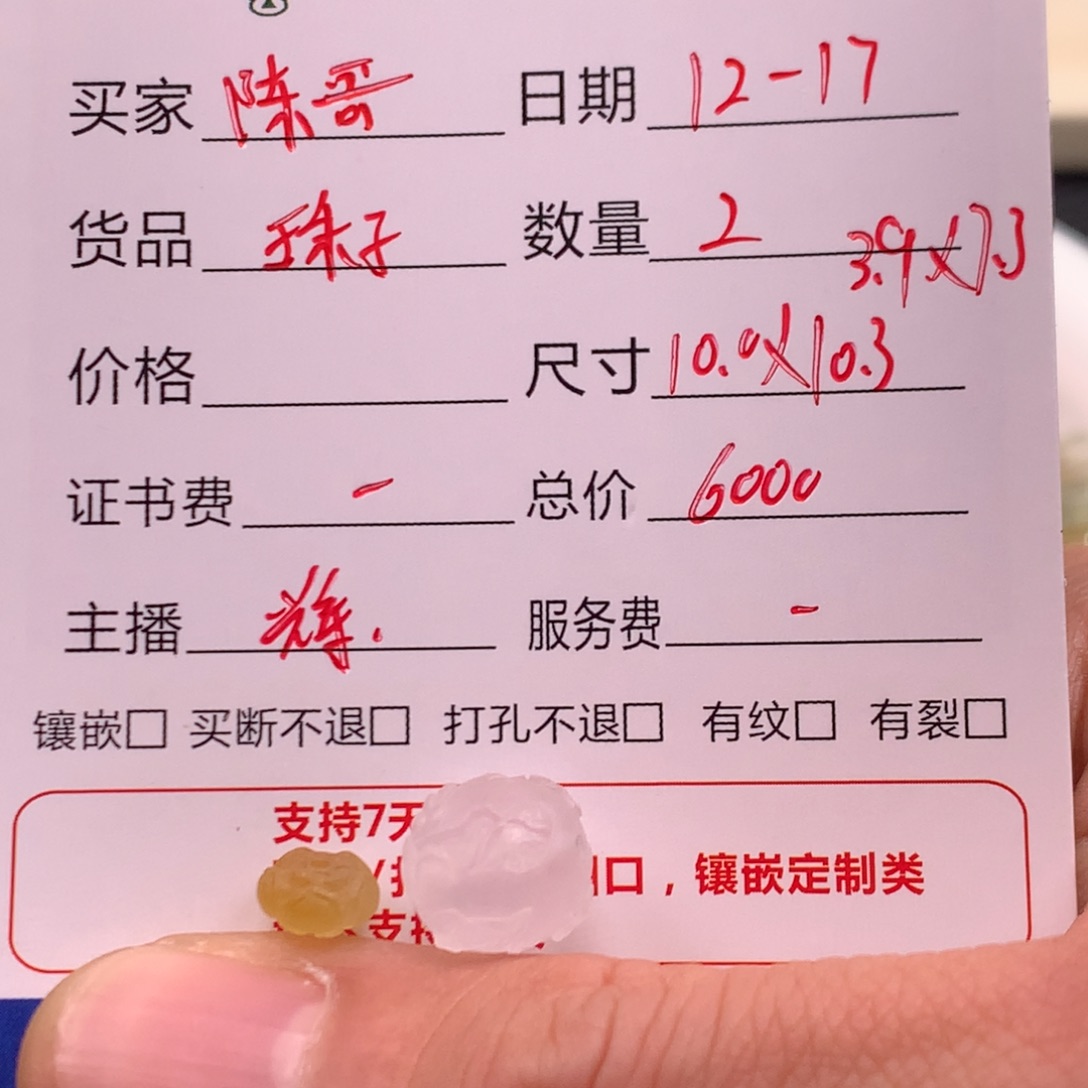 买家 陈哥 日期 12-17
货品 珠子 数量 2
3.9x7.3
价格 尺寸 10.0x10.3
证书费 - 总价 6000
主播 辉. 服务费 -
镶嵌□ 买断不退□ 打孔不退□ 有纹□ 有裂□
支持7天
口，镶嵌定制类
支持